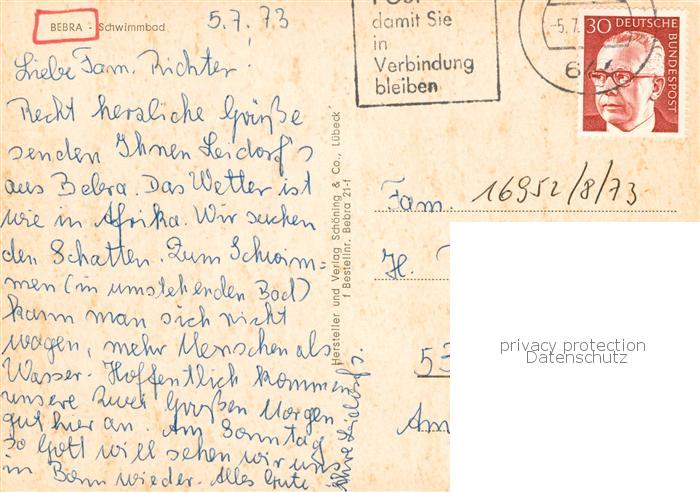 BEBRA - Schwimmbad
5.7.73
Liebe Fam. Richter!
Recht herzliche Grüße
senden Ihnen Leidorf's
aus Bebra. Das Wetter ist
wie in Afrika. Wir suchen
den Schatten. Zum Schwim-
men (in umstehenden Bad)
kann man sich nicht
wagen, mehr Menschen als
Wasser. Hoffentlich kommen
unsere zwei Großen Morgen
gut hier an. Am Sonntag
so Gott will sehen wir uns
in Bonn wieder. Alles Gute
Ihre Leidorf's.
Hersteller und Verlag Schöning & Co., Lübeck
f Bestellnr. Bebra 21-f
damit Sie
in
Verbindung
bleiben
-5.7.
64
30 DEUTSCHE
BUNDESPOST
Fam. 16952/8/73
H.
53
Am
privacy protection
Datenschutz